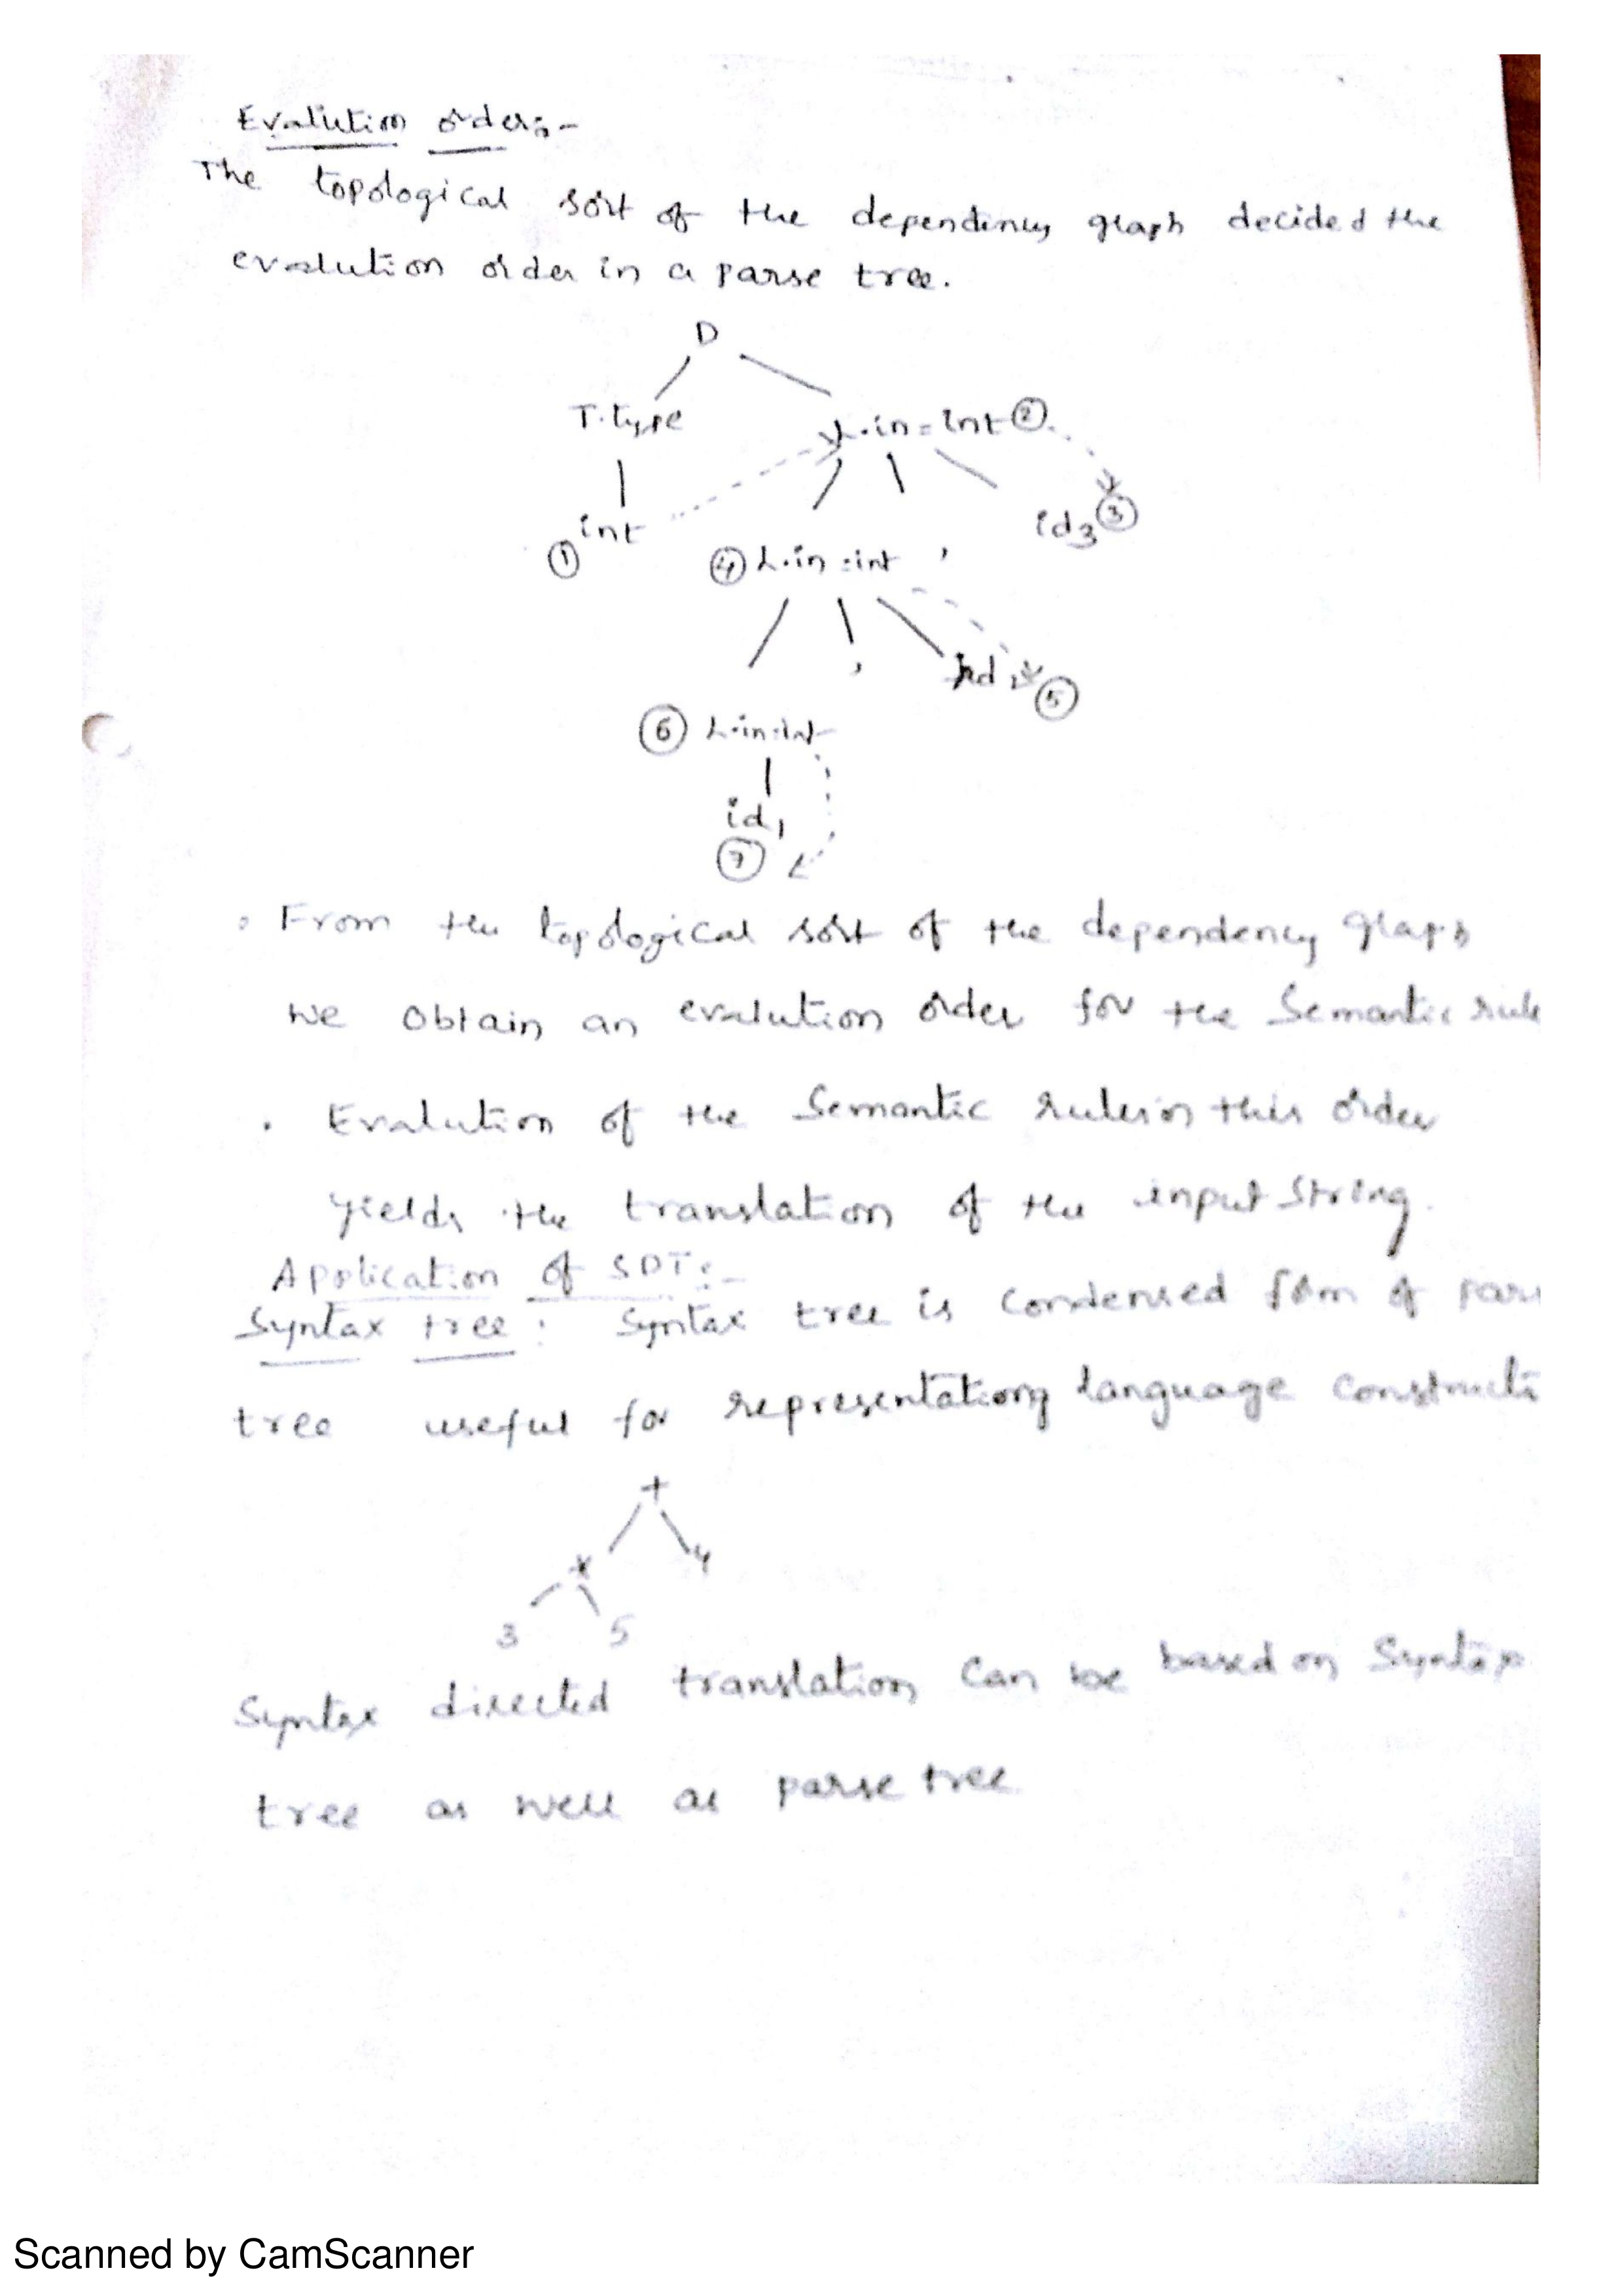 Evalution order:-
The topological sort of the dependency graph decided the
evalution order in a parse tree.
D
T.type L.in = int ②
int ① id3 ③
④ L.in = int ,
, id2 ⑤
⑥ L.in = int
id1
⑦
. From the topological sort of the dependency graph
we obtain an evalution order for the Semantic rule
. Evalution of the Semantic rules in this order
yields the translation of the input string.
Application of SDT:-
Syntax tree : Syntax tree is condensed form of pars
tree useful for representationg language constructi
+
* 4
3 5
Syntax directed translation can be based on Syntax
tree as well as parse tree
Scanned by CamScanner